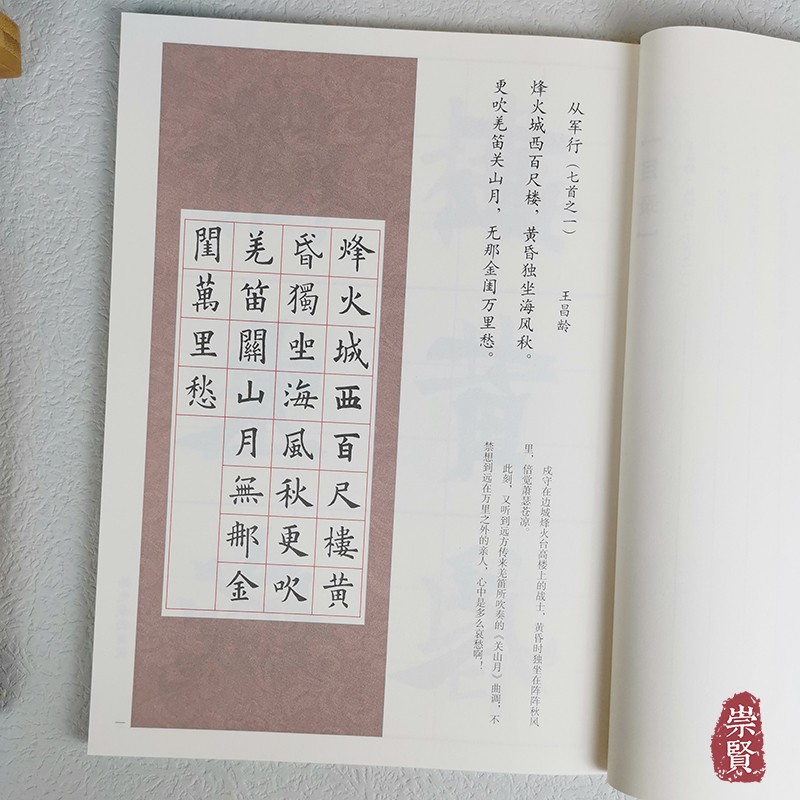 从军行（七首之一）
王昌龄
烽火城西百尺楼，黄昏独坐海风秋。
更吹羌笛关山月，无那金闺万里愁。
戍守在边城烽火台高楼上的战士，黄昏时独坐在阵阵秋风
里，倍觉萧瑟苍凉。
此刻，又听到远方传来羌笛所吹奏的《关山月》曲调，不
禁想到远在万里之外的亲人，心中是多么哀愁啊！
烽火城西百尺樓黃
昏獨坐海風秋更吹
羌笛關山月無那金
閨萬里愁
崇賢